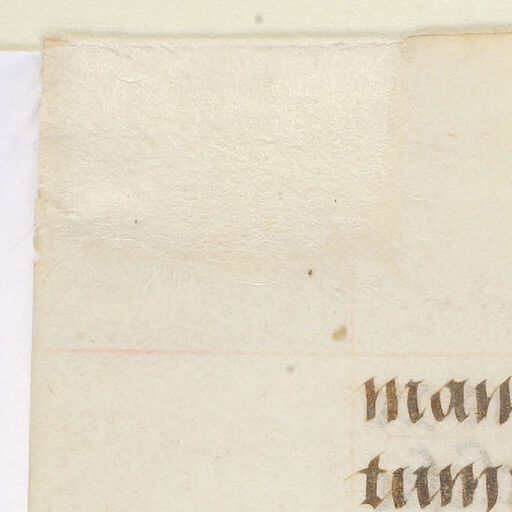 man
tum